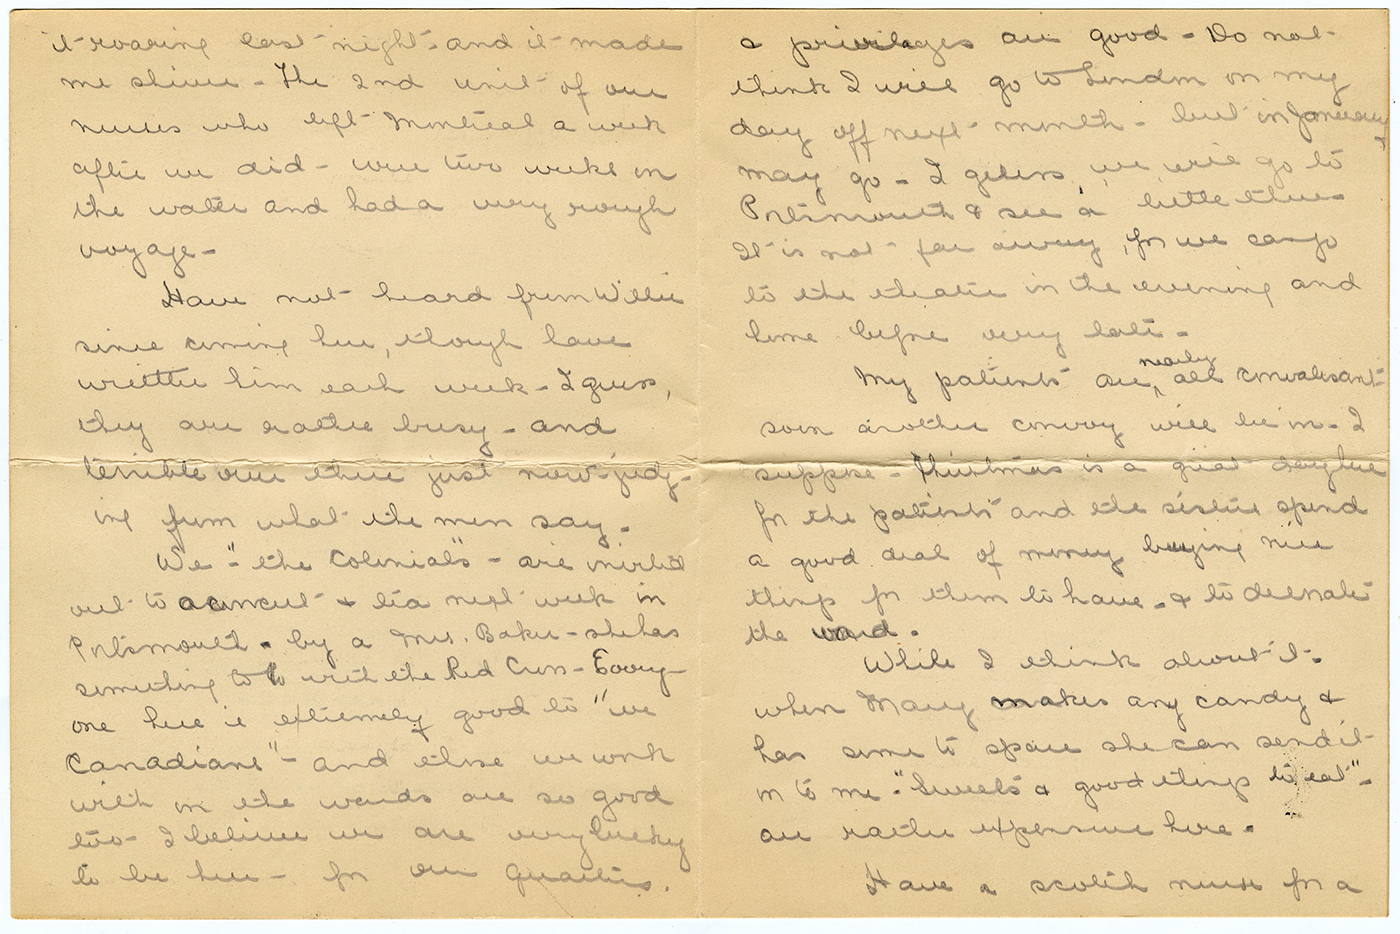 it roaring last night - and it made
me shiver - The 2nd unit of our
nurses who left Montreal a week
after we did - were two weeks on
the water and had a very rough
voyage -
Have not heard from Willie
since coming here, though have
written him each week - I guess,
they are rather busy - and
terrible over there just now - judg-
ing from what the men say.
We - "the Colonials" - are invited
out to a concert & tea next week in
Portsmouth - by a Mrs. Baker - she has
something to do with the Red Cross - Every-
one here is extremely good to "we
Canadians" - and those we work
with in the wards are so good
too - I believe we are very lucky
to be here - for our quarters.
& privileges are good - Do not
think I will go to London on my
day off next month - but in January
may go - I guess, we will go to
Portsmouth & see a little there
It is not far away, for we can go
to the theatre in the evening and
home before very late -
My patients are nearly all convalesant -
soon another convoy will be in - I
suppose - Christmas is a great day here
for the patients and the sisters spend
a good deal of money buying nice
things for them to have - & to decorate
the ward.
While I think about it -
when Mary makes any candy &
has some to spare she can send it
on to me - "Sweets & good things to eat" -
are rather expensive here -
Have a scotch nurse for a